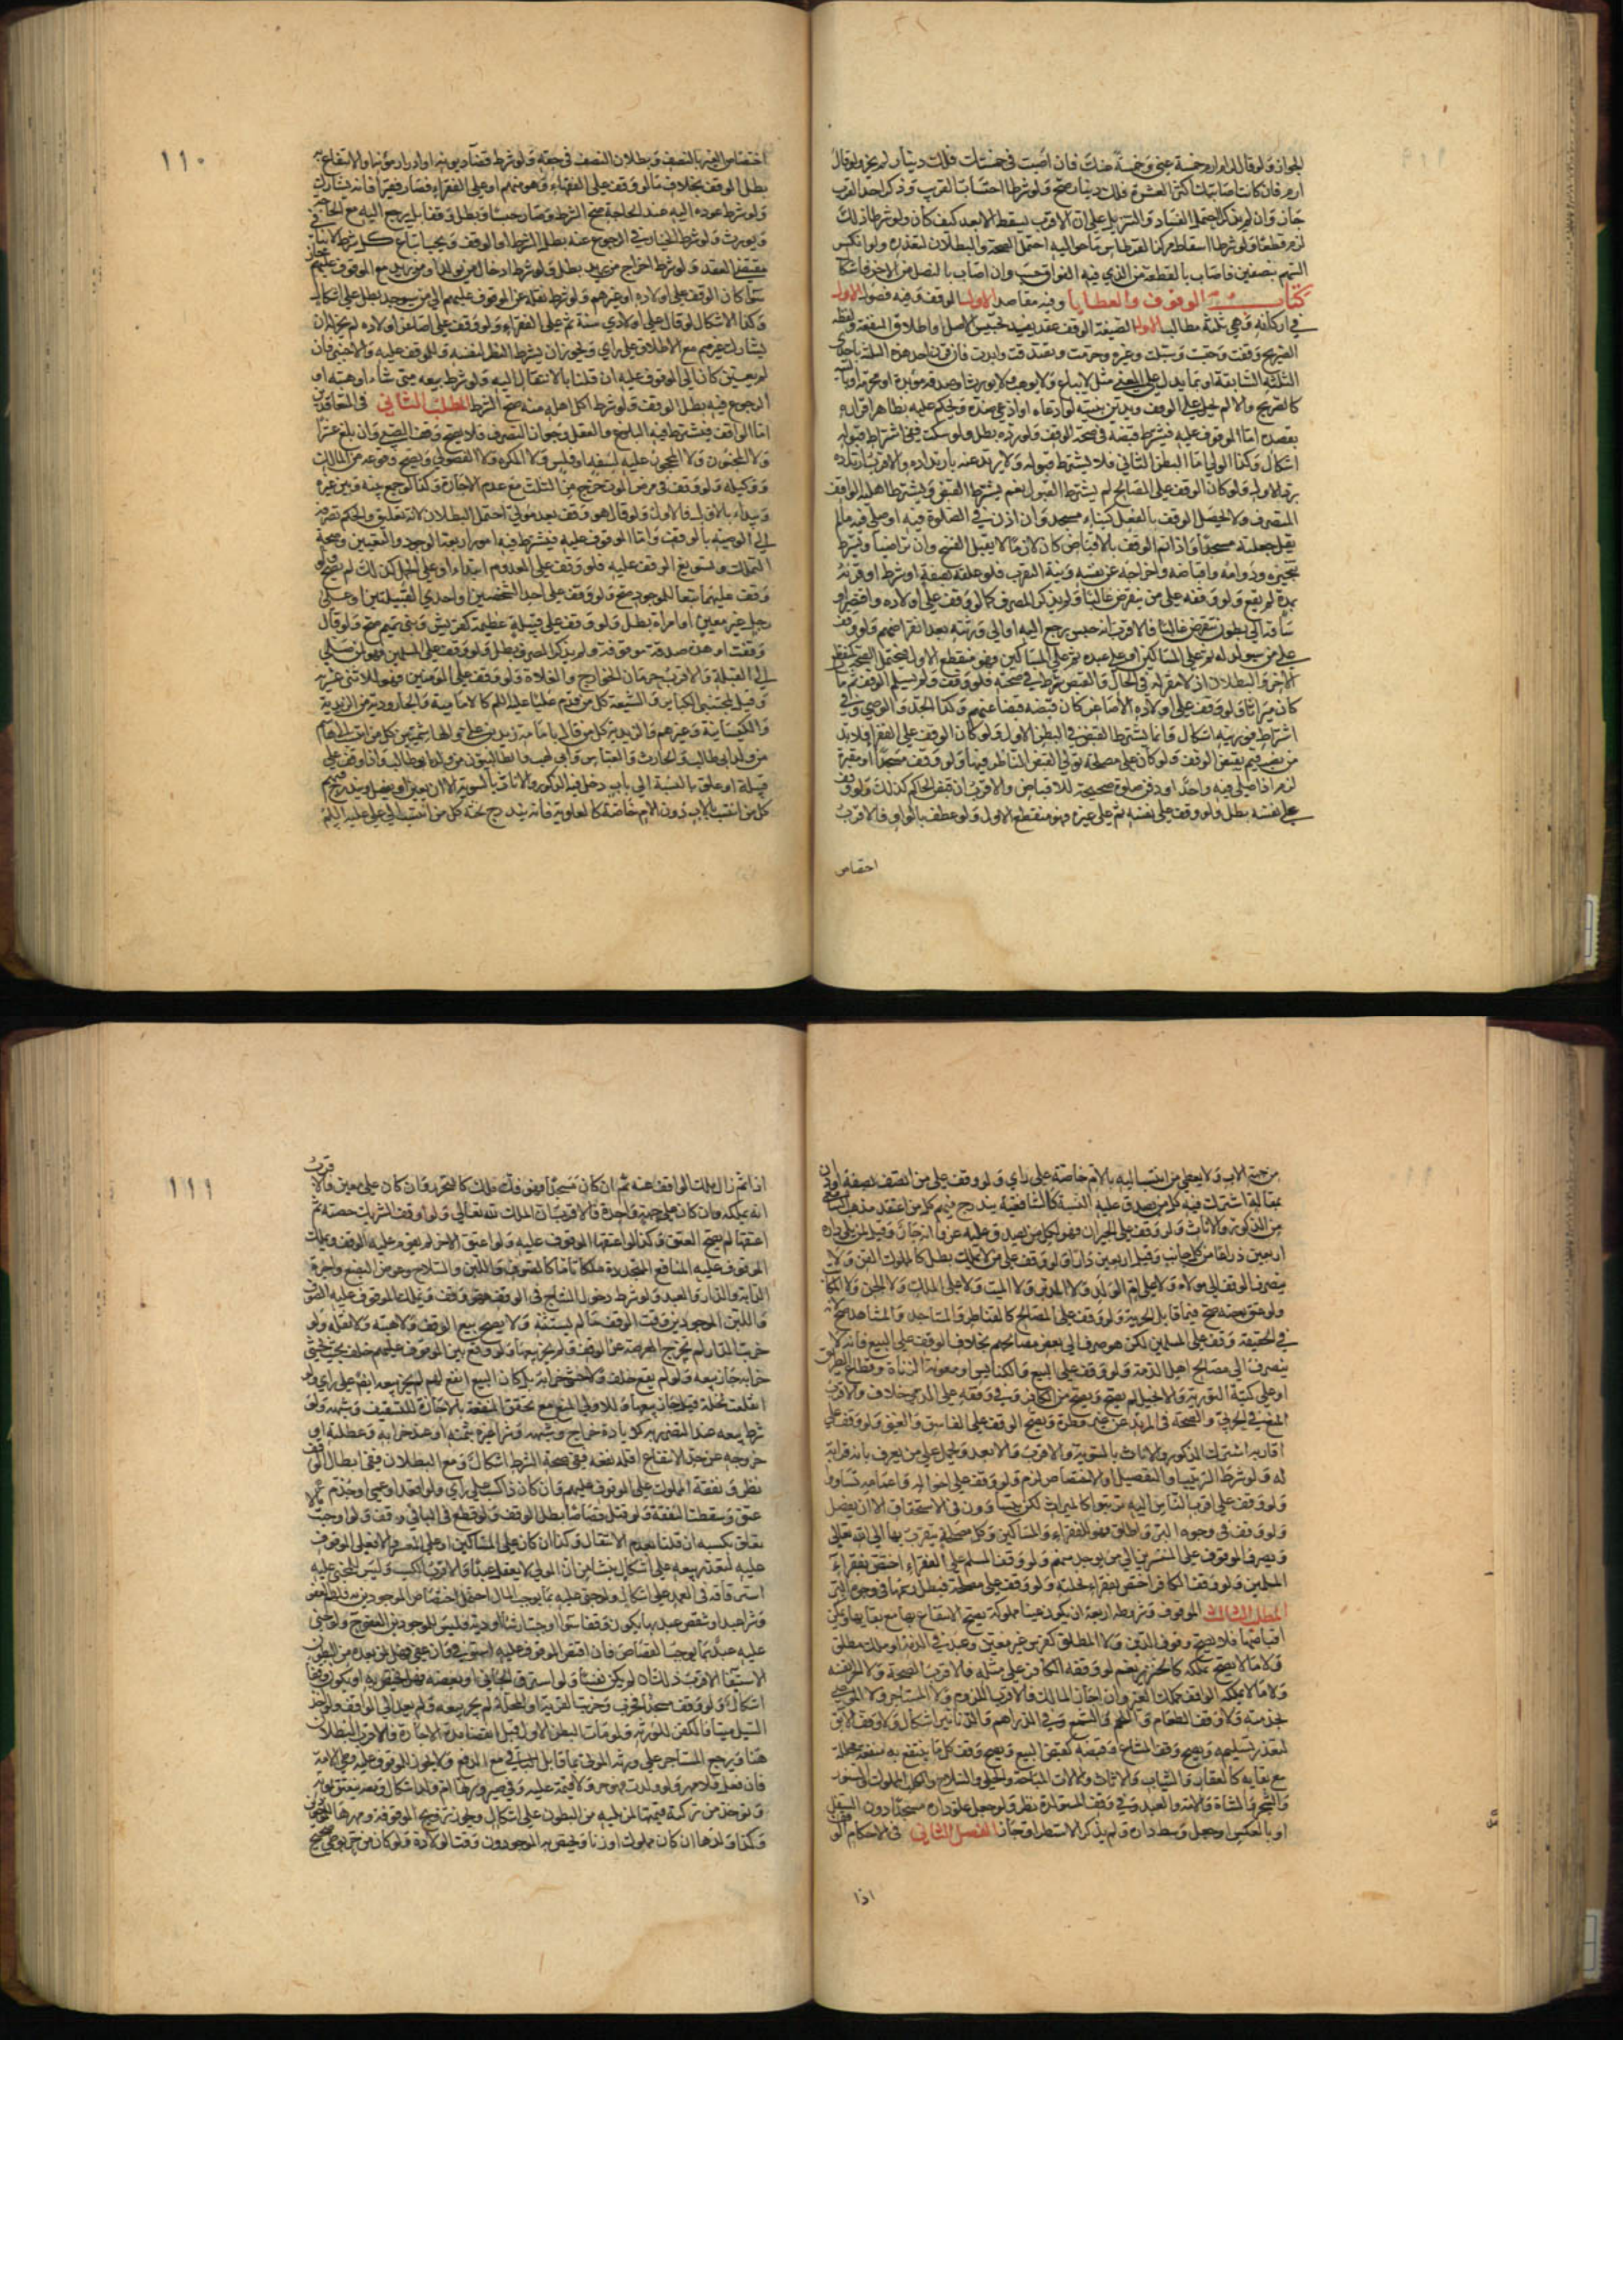 الجواز ولو قال لدارم ارم خمسة عني وخمسة عنك فان اصبت في خمستك فلك دينار لم يجز ولو قال
ارم فان كانت اصابتك اكثر العشرة فلك دينار صح ولو شرطا احتساب القريب وذكر احد القرب
جاز وان لم يذكر احتمل الفساد والتنزيل على ان الاقرب يسقط الابعد كيف كان ولو شرطا ذلك
لزم قطعا ولو شرطا اسقاط مركز القرطاس ما حواليه احتمل الصحة والبطلان لتعذره ولو انكسر
السهم بنصفين فاصاب بالقطعة من الذي فيه الفواق حسب وان اصاب بالنصل من الاخر فاشكال
كتاب الوقوف والعطايا وفيه مقاصد الاول الوقف وفيه فصول الاول
في اركانه وهي ثلثة مطالب الاول الصيغة الوقف عقد يفيد تحبيس الاصل واطلاق المنفعة ولفظه
الصريح وقفت وحبست وسبلت وغيره وحرمت وتصدقت وابدت فان قرن احد هذه الثلثة باحدى
الثلثة السابقة او بما يدل على المعنى مثل لا يباع ولا يوهب ولا يورث او صدقة مؤبدة او محرمة او بالنية
كالصريح والا لم يحمل على الوقف ويدين بنيته لو ادعاه او ادعى ضده ويحكم عليه بظاهر اقراره
بقصده اما الموقوف عليه فيشترط قبضه في صحة الوقف ولو رده بطل ولو سكت ففي اشتراط قبوله
اشكال وكذا الولي اما البطن الثاني فلا يشترط قبوله ولا يرتد عنه بارتداده والاقرب ارتداده
برد الاول ولو كان الوقف على المصالح لم يشترط القبول نعم يشترط القبض ويشترط اهلية الواقف
المتصرف ولا يحصل الوقف بالفعل كبناء مسجد وان اذن في الصلوة فيه او صلى فيه ما لم
يقل جعلته مسجدا واذا تم الوقف بالاقباض كان لازما لا يقبل الفسخ وان تراضيا ويشترط
تنجيزه ودوامه واقباضه واخراجه عن نفسه ونية التقرب فلو علقه بصفة او شرط او قرنه
بمدة لم يقع ولو وقفه على من ينقرض غالبا ولو يذكر المصرف كما لو وقف على اولاده واقتصر او
ساقه الى بطون تنقرض غالبا فالاقرب انه حبس يرجع اليه او الى ورثته بعد انقراضهم ولو وقف
على من سيولد له ثم على المساكين او على عبده ثم على المساكين فهو منقطع الاول فيحتمل الصحة
الاخر والبطلان اذ لا مقر له في الحال والقبض شرط في صحته فلو وقف ولم يسلم الوقف ثم مات
كان ميراثا ولو وقف على اولاده الاصاغر كان قبضه قبضا عنهم وكذا الجد والوصي وفي
اشتراط فوريته اشكال وانما يشترط القبض في البطن الاول ولو كان الوقف على الفقراء فلا بد
من نصب قيم يقبض الوقف ولو كان على مصلحة تولى القبض الناظر فيها ولو وقف مسجدا او مقبرة
لزم اذا صلى فيه واحد او دفن صلوة صحيحة للاقباض والاقرب ان قبض الحاكم كذلك ولو وقف
على نفسه بطل ولو وقف على نفسه ثم على غيره فهو منقطع الاول ولو عطف بالواو فالاقرب
اختصاص
١١٠
اختصاص الغير بالنصف وبطلان النصف في حقه ولو شرط قضاء ديونه او ادرار مؤنته والانتفاع به
بطل الوقف بخلاف ما لو وقف على الفقهاء وهو منهم او على الفقراء فصار فقيرا فانه يشارك
ولو شرط عوده اليه عند الحاجة صح الشرط وصار حبسا وبطل وقفا بل يرجع اليه مع الحاجة
ويورث ولو شرط الخيار في الرجوع عنه بطل الشرط او الوقف ويجب اتباع كل شرط لا ينافي
مقتضى العقد ولو شرط اخراج من يريد بطل ولو شرط ادخال من يولد او من يريد مع الموقوف عليهم جاز
سوا كان الوقف على اولاده او غيرهم ولو شرط نقله عن الموقوف عليهم الى من سيوجد بطل على اشكال
وكذا الاشكال لو قال على اولادي سنة ثم على الفقراء ولو وقف على اصاغر اولاده لم يجز ان
يشارك غيرهم مع الاطلاق على راي ويجوز ان يشترط النظر لنفسه وللموقف عليه والاجنبي فان
لم يعين كان الى الموقوف عليه ان قلنا بالانتقال اليه ولو شرط بيعه متى شاء او هبته او
الرجوع فيه بطل الوقف ولو شرط اكل اهله منه صح الشرط المطلب الثاني في المتعاقدين
اما الواقف فيشترط فيه البلوغ والعقل وجواز التصرف فلا يصح وقف الصبي وان بلغ عشرا
ولا المجنون ولا المحجور عليه لسفه او فلس ولا المكره ولا الفضولي ويصح وقوعه من المالك
ووكيله ولو وقف في مرض الموت خرج من الثلث مع عدم الاجازة وكذا لو جمع بينه وبين غيره
ويبداء بالاول فالاول ولو قال هو وقف بعد موتي احتمل البطلان لانه تعليق والحكم بصرفه
الى الوصية بالوقف واما الموقوف عليه فيشترط فيه امور اربعة الوجود والتعيين وصحة
التملك وتسويغ الوقف عليه فلو وقف على المعدوم ابتداء او على الحمل كذلك لم يصح ولو
وقف عليهما تبعا للموجود صح ولو وقف على احد الشخصين او احدى القبيلتين او على
رجل غير معين او امراة بطل ولو وقف على قبيلة عظيمة كقريش وبني تميم صح ولو قال
وقفت او هذه صدقة موقوفة ولم يذكر المصرف بطل ولو وقف على المسلمين فهو لمن صلى
الى القبلة والاقرب حرمان الخوارج والغلاة ولو وقف على المؤمنين فهو للاثنى عشرية
وقيل لمجتنبي الكبائر والشيعة كل من قدم عليا عليه السلم كالامامية والجارودية من الزيدية
والكيسانية وغيرهم والزيدية كل من قال بامامة زيد بن علي والهاشميين كل من انتسب الى هاشم
من ولد ابي طالب والحارث والعباس وابي لهب والطالبيون من ولده ابو طالب واذا وقف على
قبيلة او علق بالنسبة الى باب دخل فيه الذكور والاناث بالسوية الا ان يعين او يفضل ويندرج فيهم
كل من انتسب بالاب دون الام خاصة كالعلوية فانه يندرج تحته كل من انتسب الى علي عليه السلم
من جهة الاب ولا يعطى من انتسب اليه بالام خاصة على راي ولو وقف على من اتصف بصفة او دان
بمقالة اشترك فيه كل من صدق عليه النسبة كالشافعية يندرج فيهم كل من اعتقد مذهب الشافعي
من الذكور والاناث ولو وقف على الجيران فهو لكل من يصدق عليه عرفا انه جار وقيل لمن يلي داره
اربعين ذراعا من كل جانب وقيل اربعين دارا ولو وقف على من لا يملك بطل كالمملوك القن ولا
ينصرف الوقف الى مولاه ولا على ام الولد ولا المدبر ولا الميت ولا على الملك ولا الجن ولا المكاتب
ولو عتق بعضه صح فيما قابل الحرية ولو وقف على المصالح كالقناطر والمساجد والمشاهد صح لانه
في الحقيقة وقف على المسلمين لكن هو صرف الى بعض مصالحهم بخلاف الوقف على البيع فانه لا
ينصرف الى مصالح اهل الذمة ولو وقف على البيع والكنائس او معونة الزناة وقطاع الطريق
او على كتبة التورية والانجيل لم يصح ويصح من الكافر وفي وقفه على الذمي خلاف والاقرب
المنع في الحربي والصحة في المرتد عن غير فطرة ويصح الوقف على الفاسق والغني ولو وقف على
اقاربه اشترك الذكور والاناث بالسوية والاقرب والابعد ويحمل على من يعرف بانه قرابة
له ولو شرط الترتيب او التفصيل او الاختصاص لزم ولو وقف على اخواله واعمامه تساووا
ولو وقف على اقرب الناس اليه ترتبوا كالميراث لكن يتساوون في الاستحقاق الا ان يفضل
ولو وقف في وجوه البر واطلق فهو للفقراء والمساكين وكل مصلحة يتقرب بها الى الله تعالى
ويصرف الموقوف على المنتشرين الى من يوجد منهم ولو وقف المسلم على الفقراء اختص بفقراء
المسلمين ولو وقف الكافر اختص بفقراء نحلته ولو وقف على مصلحة فبطل رسمها في وجوه البر
المطلب الثالث الموقوف وشروطه اربعة ان يكون عينا مملوكة يصح الانتفاع بها مع بقائها ويمكن
اقباضها فلا يصح وقوف الدين ولا المطلق كفرس غير معين وعبد في الذمة او ملك مطلق
ولا ما لا يصح تملكه كالخنزير نعم لو وقفه الكافر على مثله فالاقرب الصحة ولا الحر نفسه
ولا ما لا يملكه الواقف كملك الغير وان اجاز المالك فالاقرب اللزوم ولا المستاجر ولا الموصى
بخدمته ولا وقف الطعام واللحم والشمع وفي الدراهم والدنانير اشكال ولا وقف الابق
لتعذر تسليمه ويصح وقف المشاع وقبضه كقبض البيع ويصح وقف كل ما ينتفع به منفعة محللة
مع بقائه كالعقار والثياب والاثاث والالات المباحة والحلي والسلاح والكلب المملوك والسنور
والشجر والشاة والامة والعبد وفي وقف المستولدة نظر ولو جعل علو داره مسجدا دون السفل
او بالعكس او جعل وسط داره ولم يذكر الاستطراق جاز الفصل الثاني في الاحكام الوقف
اذا
١١١
اذا تم زال ملك الواقف عنه ثم ان كان مسجدا فهو فك ملك كالتحرير وان كان على معين فالاقرب
انه يملكه وان كان على جهة واحدة فالاقرب ان الملك لله تعالى ولو اوقف الشريك حصته ثم
اعتقها لم يصح العتق وكذا لو اعتقها الموقوف عليه ولو اعتق الاخر لم يقوم عليه الوقف ويملك
الموقوف عليه المنافع المتجددة ملكا تاما كالصوف واللبن والنتاج وعوض البضع واجرة
الدابة والدار والعبد ولو شرط دخول النتاج في الوقف فهو وقف ويملك الموقوف عليه الصوف
واللبن الموجودين وقت الوقف ما لم يستثنه ولا يصح بيع الوقف ولا هبته ولا نقله ولو
خربت الدار لم تخرج العرصة عن الوقف ولم يجز بيعها ولو وقع بين الموقوف عليهم خلف بحيث يخشى
خرابه جاز بيعه ولو لم يقع خلف ولا خشي خرابه بل كان البيع انفع لهم لم يجز بيعه ايضا على راي ولو
انقلعت نخلة قيل جاز بيعها والاولى المنع مع تحقق المنفعة بالاجازة للتسقيف وشبهه ولو
شرط بيعه عند التضرر به كزيادة خراج وشبهه وشراء غيره بثمنه او عند خرابه وعطلته او
خروجه عن حد الانتفاع او قلة نفعه ففي صحة الشرط اشكال ومع البطلان ففي ابطال الوقف
نظر ونفقة المملوك على الموقوف عليهم وان كان ذا كسب على راي ولو اقعد او عمي او جذم
عتق وسقطت النفقة ولو قتل قصاصا بطل الوقف ولو قطع في الباقي وقف ولو اوجبت مالا
تعلق بكسبه ان قلنا بعدم الانتقال وكذا ان كان على المساكين او على المعسر والا فعلى الموقوف
عليه لتعذر بيعه على اشكال ينشا من ان المولى لا يعقل عبدا والاقرب الكسب وليس للمجنى عليه
استرقاقه في العمد على اشكال ولو جني عليه بما يوجب المال احتمل اختصاص الموجودين به فلهم العفو
وشراء عبد او شقص عبد بها يكون وقفا سوا اوجبت ارشا او دية فليس للموجودين العفو ولو جنى
عليه عبد بما يوجب القصاص فان اقتص الموقوف عليه استوفي وان عفى فهل لمن بعده من البطون
الاستيفا الاقرب ذلك ان لم يكن نفسا ولو استرق الجاني او بعضه فهل يختص به او يكون وقفا
اشكال ولو وقف مسجدا فخرب وخربت القرية او المحلة لم يجز بيعه ولم يعد الى الواقف ولو اخذ
السيل ميتا فالكفن للورثة ولو مات البطن الاول قبل انقضا مدة الاجارة فالاقرب البطلان
هنا ويرجع المستاجر على ورثة الموتى بما قابل المتخلف مع الدفع ولا يجوز للموقوف عليه وطي الامة
فان فعل فلا مهر ولو ولدت فهو حر ولا قيمة عليه وفي صيرورتها ام ولد اشكال ومعه تنعتق بموته
ويوخذ من تركته قيمتها لمن يليه من البطون على اشكال ويجوز تزويج الموقوفة ومهرها للموجودين
وكذا ولدها ان كان مملوك او زنا ويختص به الموجودون وقت الولادة ولو كان من حر بوطي صحيح